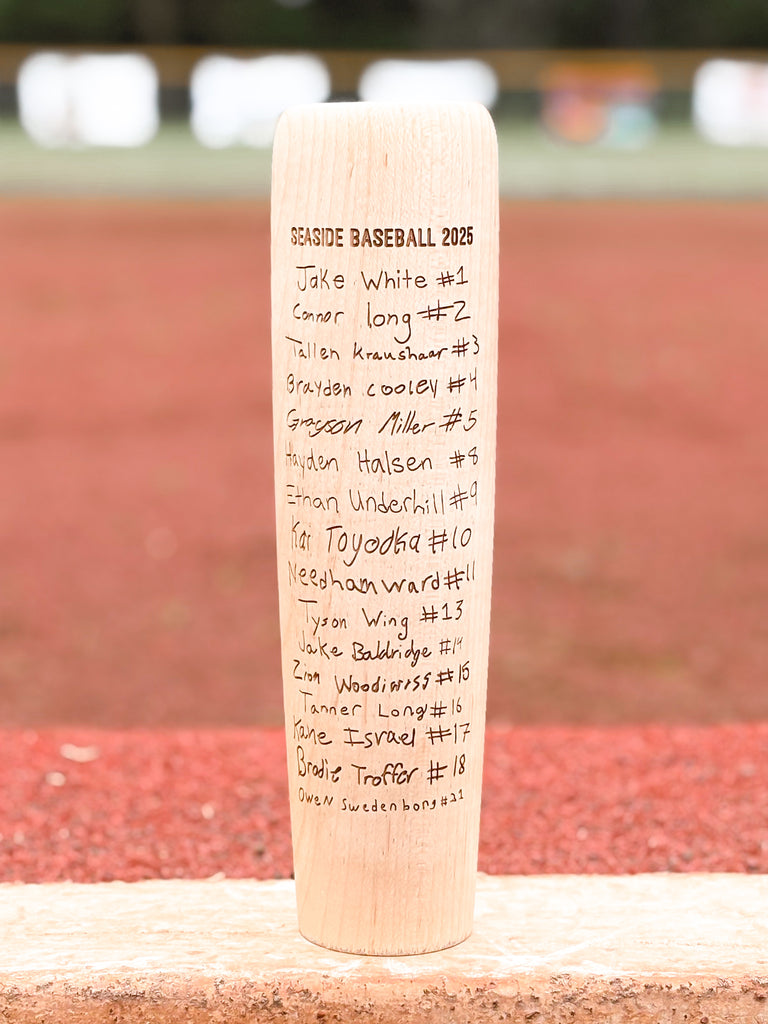 SEASIDE BASEBALL 2025
Jake White #1
Connor long #2
Tallen Kraushaar #3
Brayden cooley #4
Grayson Miller #5
Hayden Halsen #8
Ethan Underhill #9
Kai Toyooka #10
Needham ward #11
Tyson Wing #13
Jake Baldridge #14
Zion #15
Tanner Long #16
Kane Israel #17
Brodie Troffer #18
Owen Swedenborg #21